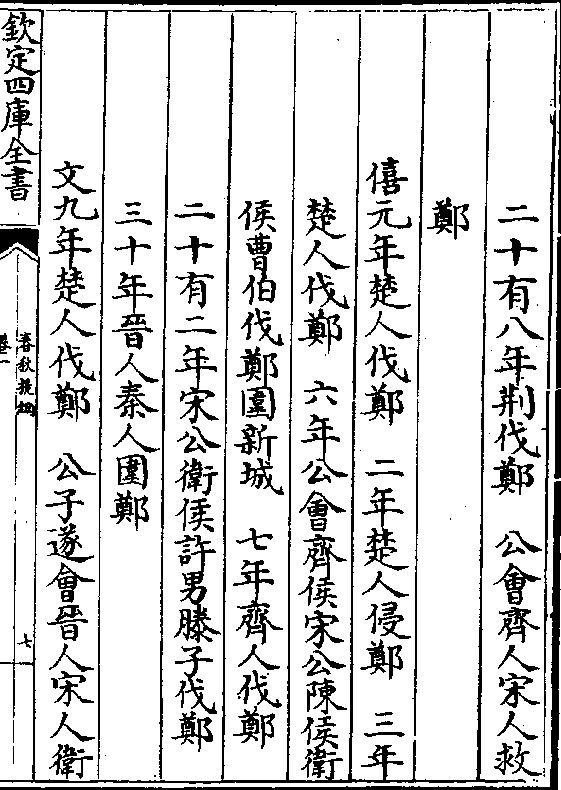 二十有八年荆伐鄭　公會齊人宋人救
鄭
僖元年楚人伐鄭　二年楚人侵鄭　三年
楚人伐鄭　六年公會齊侯宋公陳侯衛
侯曹伯伐鄭圍新城　七年齊人伐鄭
二十有二年宋公衛侯許男滕子伐鄭
三十年晉人秦人圍鄭
文九年楚人伐鄭　公子遂會晉人宋人衛
欽定四庫全書
春秋提綱
卷一
七